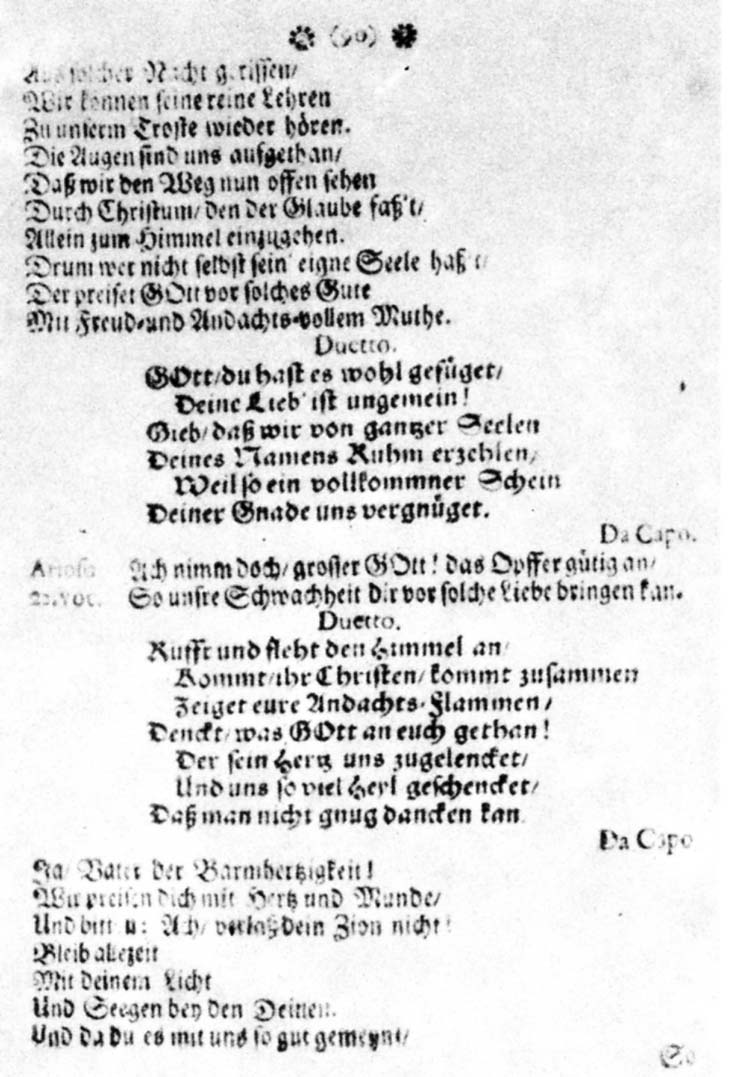 (90)
Aus solcher Nacht gerissen/
Wir können seine reine Lehren
Zu unserm Troste wieder hören.
Die Augen sind uns aufgethan/
Daß wir den Weg nun offen sehen
Durch Christum/ den der Glaube faß't/
Allein zum Himmel einzugehen.
Drum wer nicht selbst sein' eigne Seele haß't/
Der preiset GOtt vor solches Gute
Mit Freud-und Andachts-vollem Muthe.
Duetto.
GOtt/ du hast es wohl gefüget/
Deine Lieb' ist ungemein!
Gieb/ daß wir von gantzer Seelen
Deines Namens Ruhm erzehlen/
Weil so ein vollkommner Schein
Deiner Gnade uns vergnüget.
Da Capo.
Arioso Ach nimm doch/ grosser GOtt! das Opffer gütig an/
2. voc. So unsre Schwachheit dir vor solche Liebe bringen kan.
Duetto.
Rufft und fleht den Himmel an/
Kommt/ ihr Christen/ kommt zusammen
Zeiget eure Andachts-Flammen/
Denckt/ was GOtt an euch gethan!
Der sein Hertz uns zugelencket/
Und uns so viel Heyl geschencket/
Daß man nicht gnug dancken kan
Da Capo
Ja/ Vater der Barmhertzigkeit!
Wir preisen dich mit Hertz und Munde/
Und bitten: Ach/ verlaß dein Zion nicht!
Bleib allezeit
Mit deinem Licht
Und Seegen bey den Deinen.
Und da du es mit uns so gut gemeynt/
So